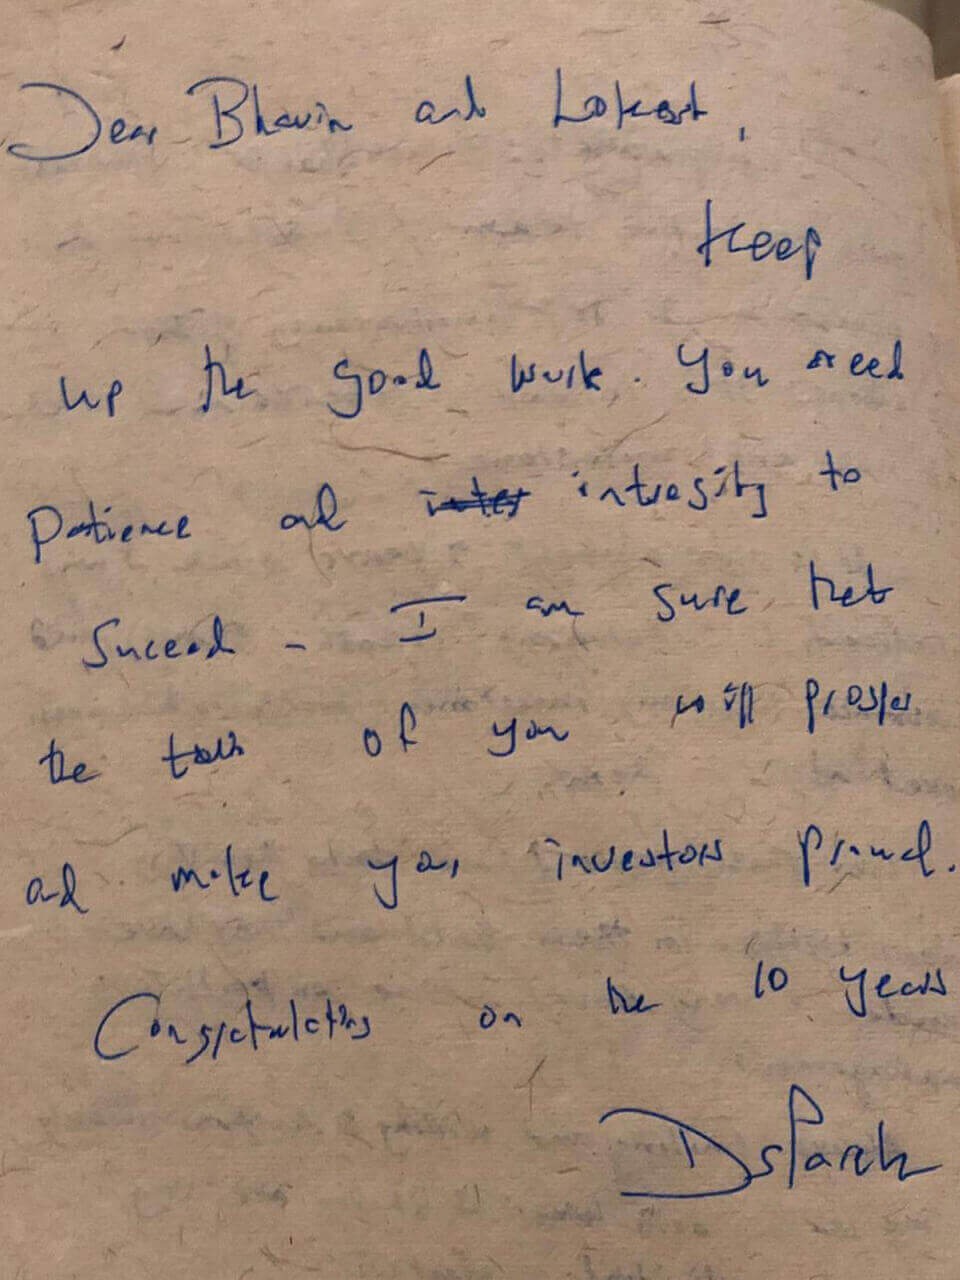 Dear Bhavin and Lokesh,
Keep
up the good work. You need
Patience ad intensity to
Suceed - I am sure that
the two of you will prosper
ad make your investors proud.
Congratulations on the 10 years
DSParekh